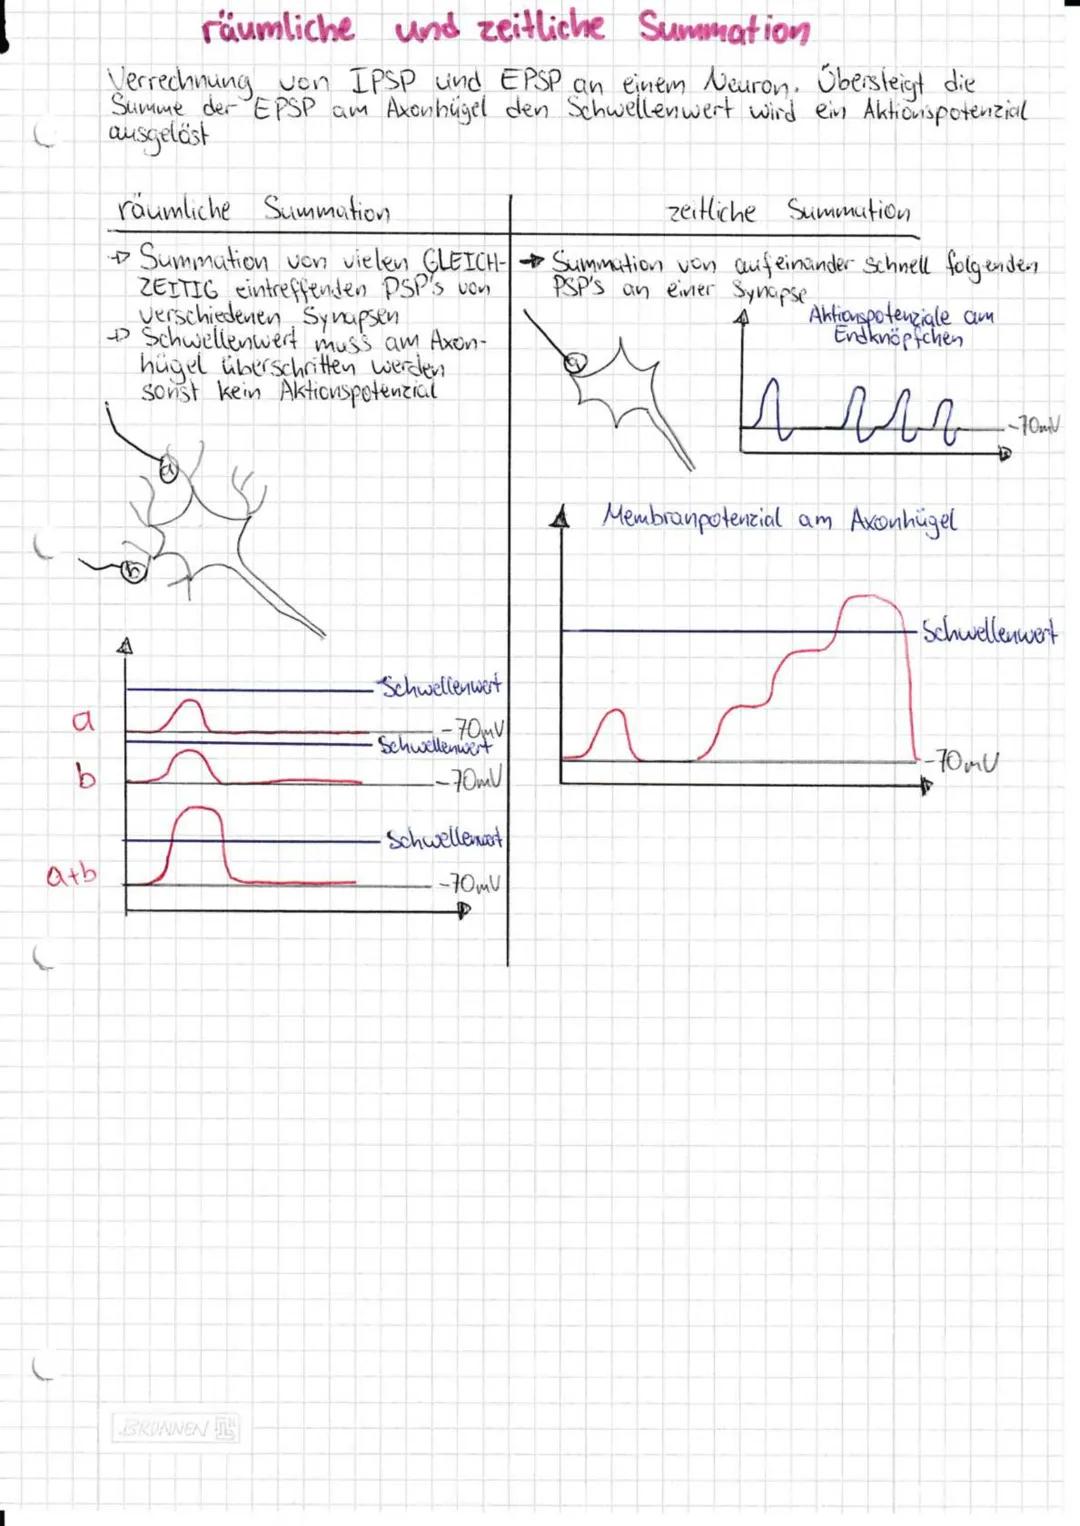 räumliche und zeitliche Summation
Verrechnung von IPSP und EPSP an einem Neuron. Übersteigt die
Summe der EPSP am Axonhügel den Schwellenwert wird ein Aktionspotenzial
ausgelöst
räumliche Summation
→ Summation von vielen GLEICH-
ZEITIG eintreffenden PSP's von
verschiedenen Synapsen
→ Schwellenwert muss am Axon-
hügel überschritten werden
sonst kein Aktionspotenzial
a
b
Schwellenwert
a
-70mV
Schwellenwert
b
-70mV
Schwellenwert
a+b
-70mV
zeitliche Summation
→ Summation von aufeinander schnell folgenden
PSP's an einer Synapse
a
Aktionspotenziale am
Endknöpfchen
-70mV
Membranpotenzial am Axonhügel
Schwellenwert
-70mV
BRUNNEN